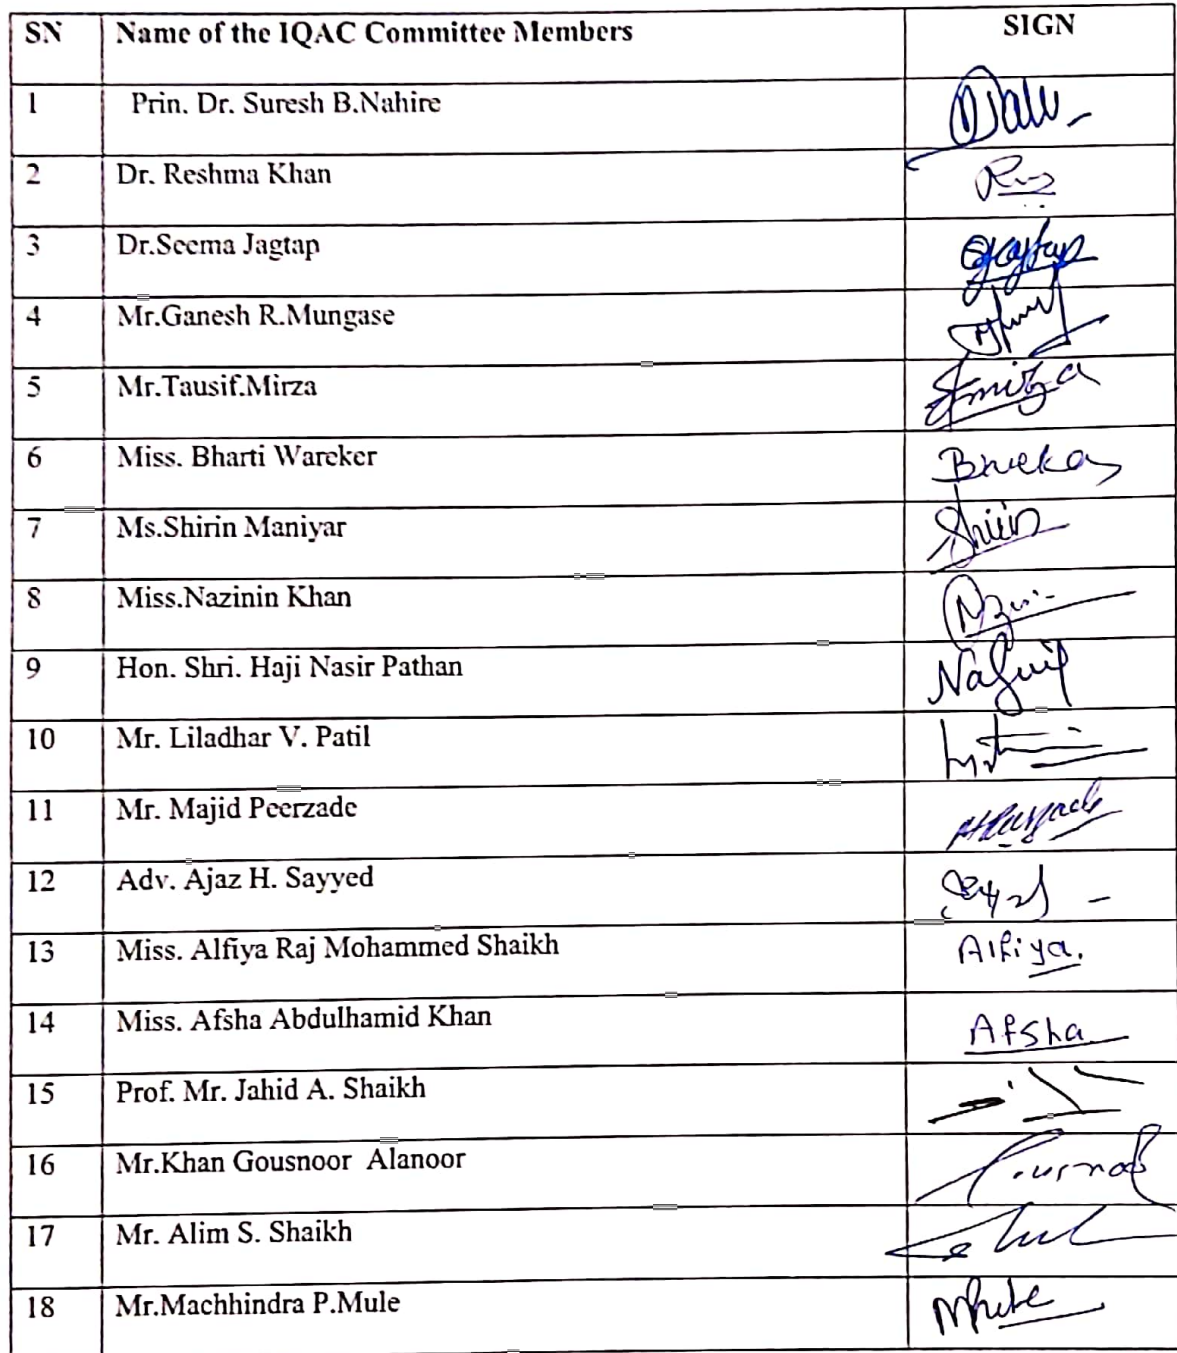 SN Name of the IQAC Committee Members SIGN
1 Prin. Dr. Suresh B.Nahire
2 Dr. Reshma Khan
3 Dr.Seema Jagtap
4 Mr.Ganesh R.Mungase
5 Mr.Tausif.Mirza
6 Miss. Bharti Wareker
7 Ms.Shirin Maniyar Shirin
8 Miss.Nazinin Khan
9 Hon. Shri. Haji Nasir Pathan
10 Mr. Liladhar V. Patil
11 Mr. Majid Peerzade
12 Adv. Ajaz H. Sayyed
13 Miss. Alfiya Raj Mohammed Shaikh Alfiya.
14 Miss. Afsha Abdulhamid Khan Afsha
15 Prof. Mr. Jahid A. Shaikh
16 Mr.Khan Gousnoor Alanoor
17 Mr. Alim S. Shaikh
18 Mr.Machhindra P.Mule